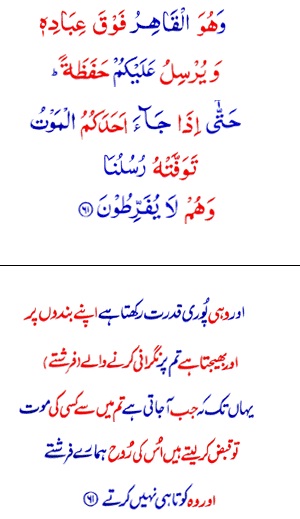 وَهُوَ الْقَاهِرُ فَوْقَ عِبَادِهٖ
وَ يُرْسِلُ عَلَيْكُمْ حَفَظَةً ؕ
حَتّٰۤى اِذَا جَآءَ اَحَدَكُمُ الْمَوْتُ
تَوَفَّتْهُ رُسُلُنَا
وَهُمْ لَا يُفَرِّطُوْنَ ﴿۶۱﴾
اور وہی پُوری قدرت رکھتا ہے اپنے بندوں پر
اور بھیجتا ہے تم پر نگرانی کرنے والے (فرشتے)
یہاں تک کہ جب آ جاتی ہے تم میں سے کسی کی موت
تو قبض کر لیتے ہیں اُس کی رُوح ہمارے فرشتے
اور وہ کوتاہی نہیں کرتے ﴿۶۱﴾